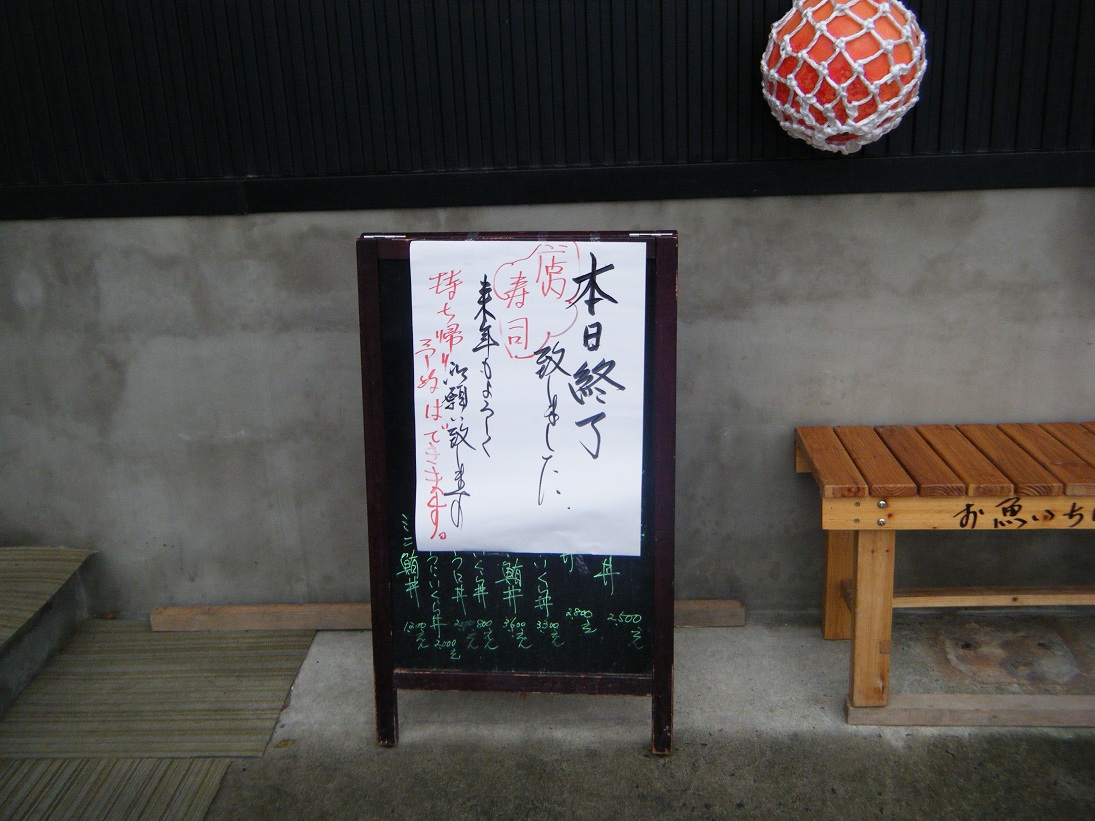 本日終了
致しました。
寿司
来年もよろしく
御願い致します
持ち帰り
予約はできます。
丼 2,500元
丼 2,800元
いくら丼 3,300元
鮪丼 3,600元
いくら丼 800元
うに丼
うにいくら丼 2,000元
ミニ鮪丼 1,200元
お魚いち